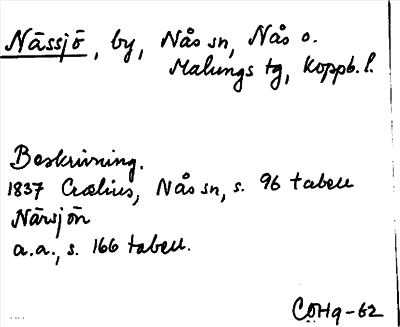 Nässjö, by, Nås sn, Nås o.
Malungs tg, Koppb. l.
Beskrivning.
1837 Crælius, Nås sn, s. 96 tabell
Närsjön
a.a., s. 166 tabell.
CÖHq-62